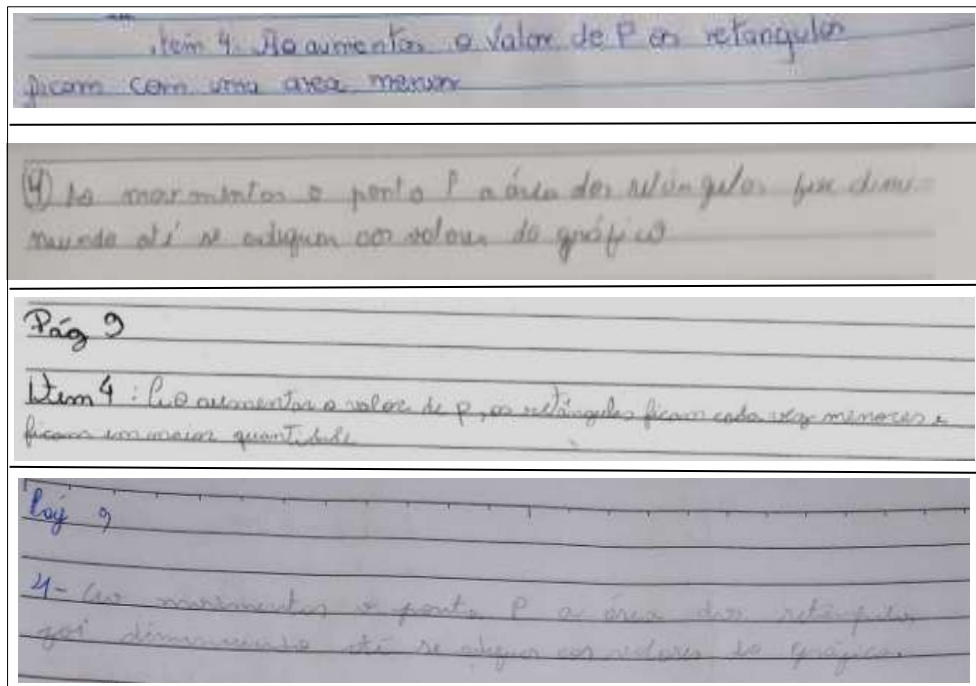 item 4: Ao aumentar o valor de P os retangulos
ficam com uma area menor
(4) Ao movimentar o ponto P a área dos retângulos foi dimi-
nuindo até se adequar aos valores do gráfico
Pág 9
Item 4: Ao aumentar o valor de p, os retângulos ficam cada vez menores e
ficam em maior quantidade
Pág 9
4- Ao movimentar o ponto P a área dos retângulos
foi diminuindo até se adequar aos valores do gráfico.